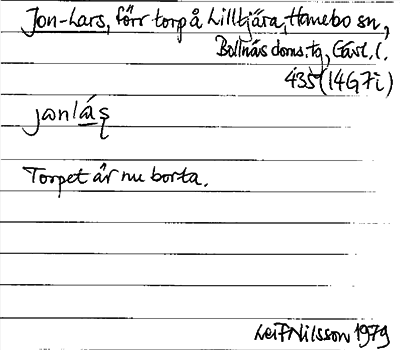 Jon-Lars, förr torp å Lilltjära, Hanebo sn,
Bollnäs doms. tg, Gävl. l.
435 (14G 7i)
janlás̩
Torpet är nu borta.
Leif Nilsson 1979